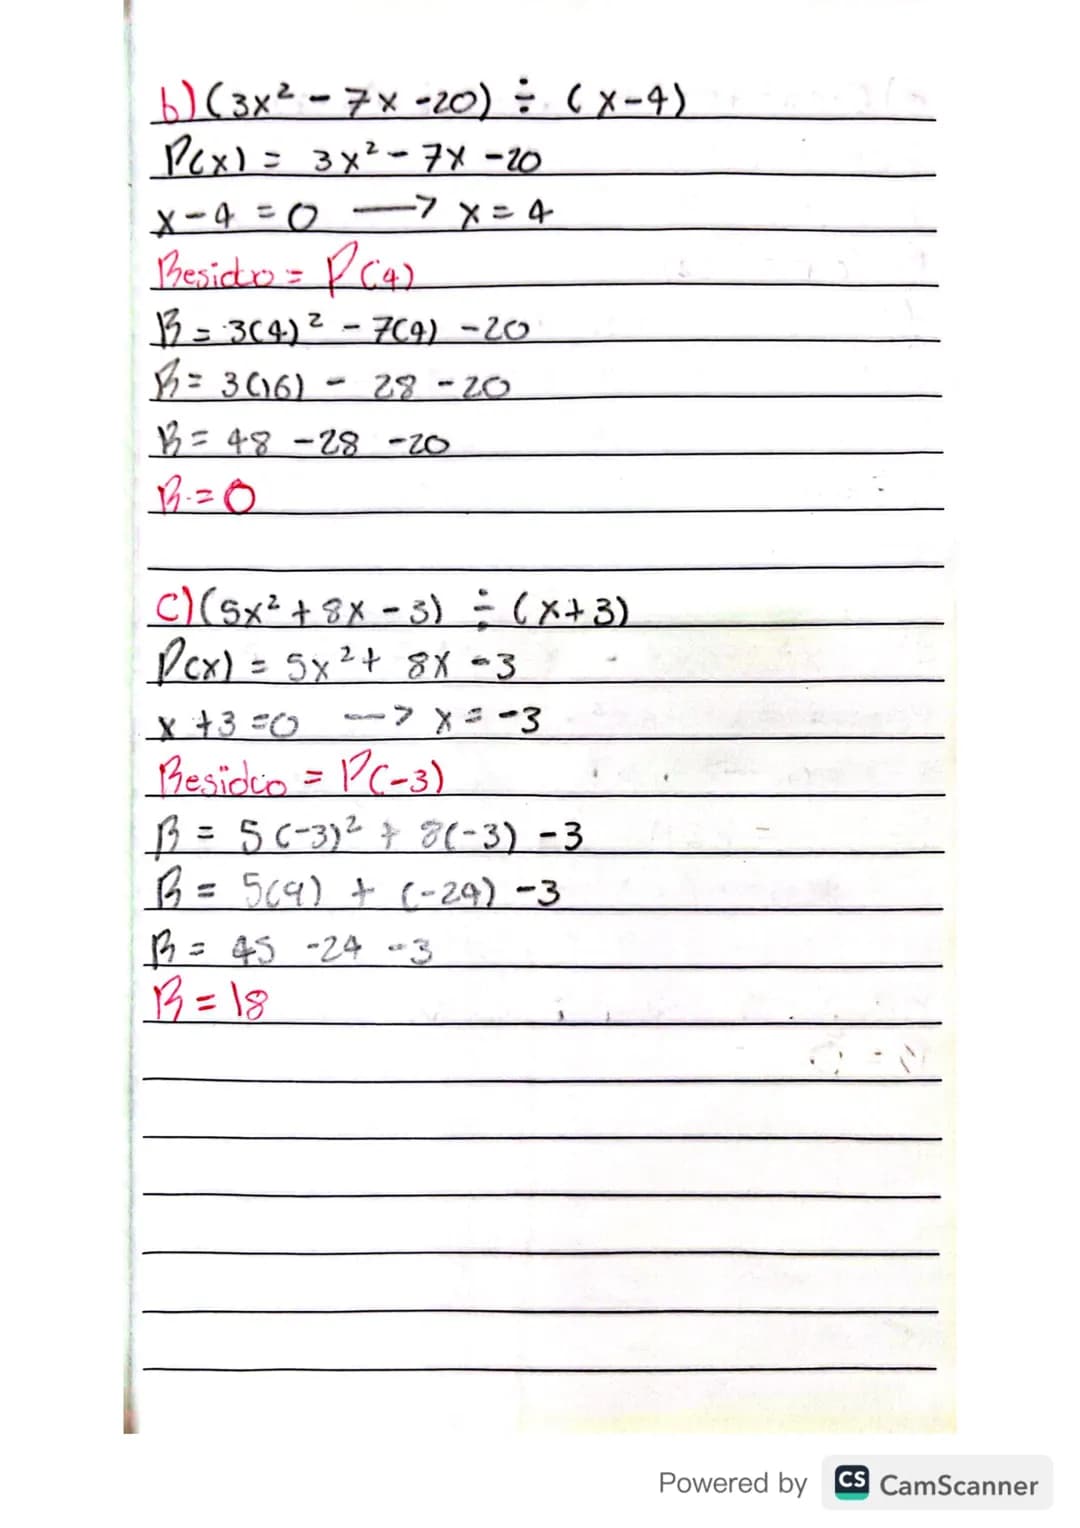 b) (3x² - 7x - 20) ÷ (x-4)
P(x) = 3x² - 7x - 20
x - 4 = 0 —> x = 4
Residuo = P(4)
R = 3(4)² - 7(4) - 20
R = 3(16) - 28 - 20
R = 48 - 28 - 20
R = 0
c) (5x² + 8x - 3) ÷ (x+3)
P(x) = 5x² + 8x - 3
x + 3 = 0 —> x = -3
Residuo = P(-3)
R = 5(-3)² + 8(-3) - 3
R = 5(9) + (-24) - 3
R = 45 - 24 - 3
R = 18
Powered by CS CamScanner